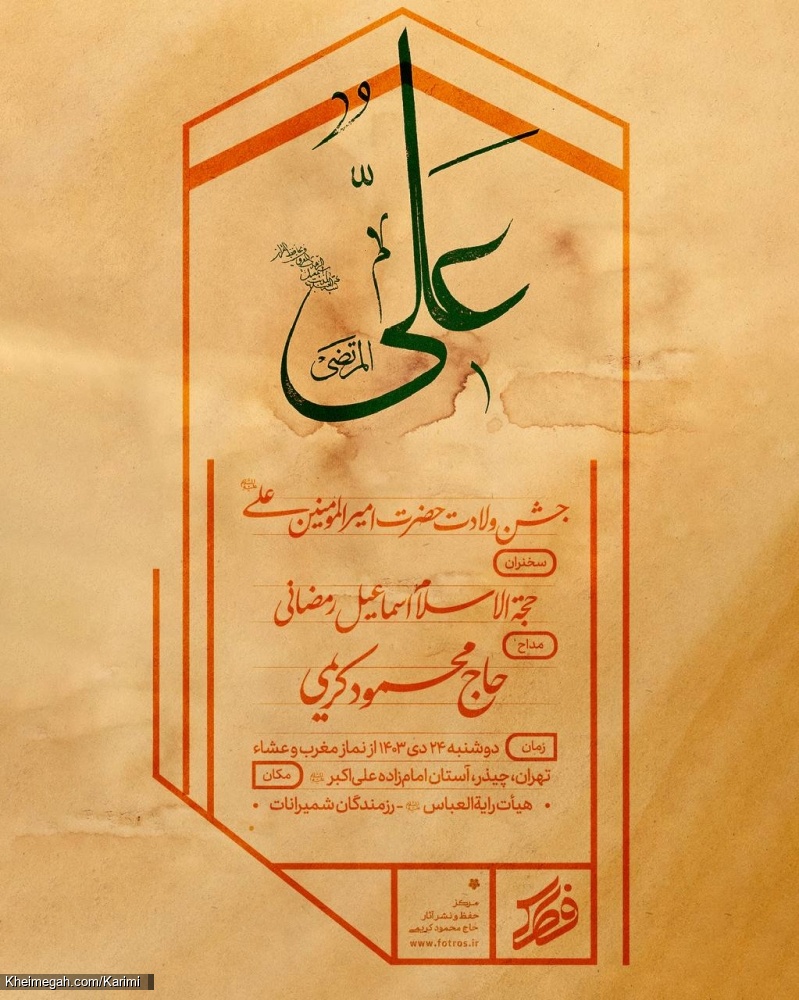 علی
المرتضی
جشن ولادت حضرت امیرالمؤمنین علی
سخنران
حجة الاسلام اسماعیل رمضانی
مداح
حاج محمود کریمی
زمان دوشنبه ۲۴ دی ۱۴۰۳ از نماز مغرب و عشاء
تهران، چیذر، آستان امام‌زاده علی‌اکبر مکان
• هیأت رایة‌العباس - رزمندگان شمیرانات •
مرکز
حفظ و نشر آثار
حاج محمود کریمی
www.fotros.ir
فطرس
Kheimegah.com/Karimi